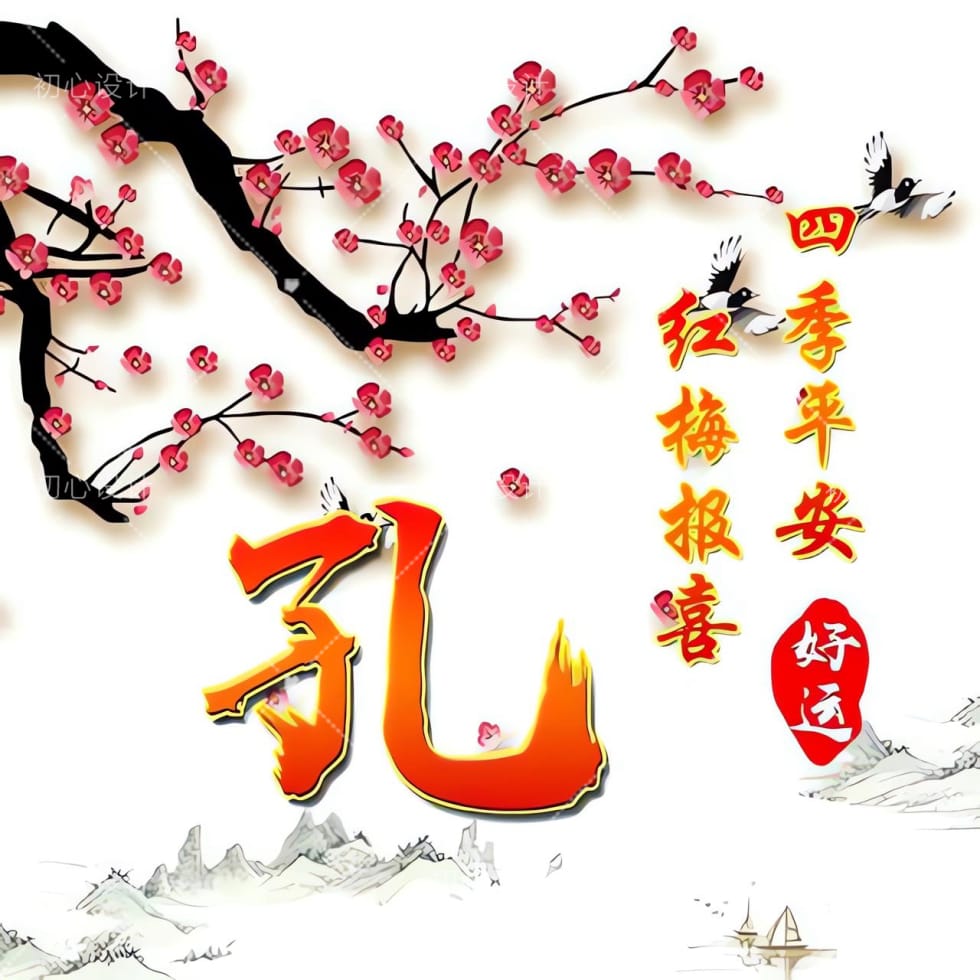 四季平安
红梅报喜
好运
孔
初心设计
初心设计